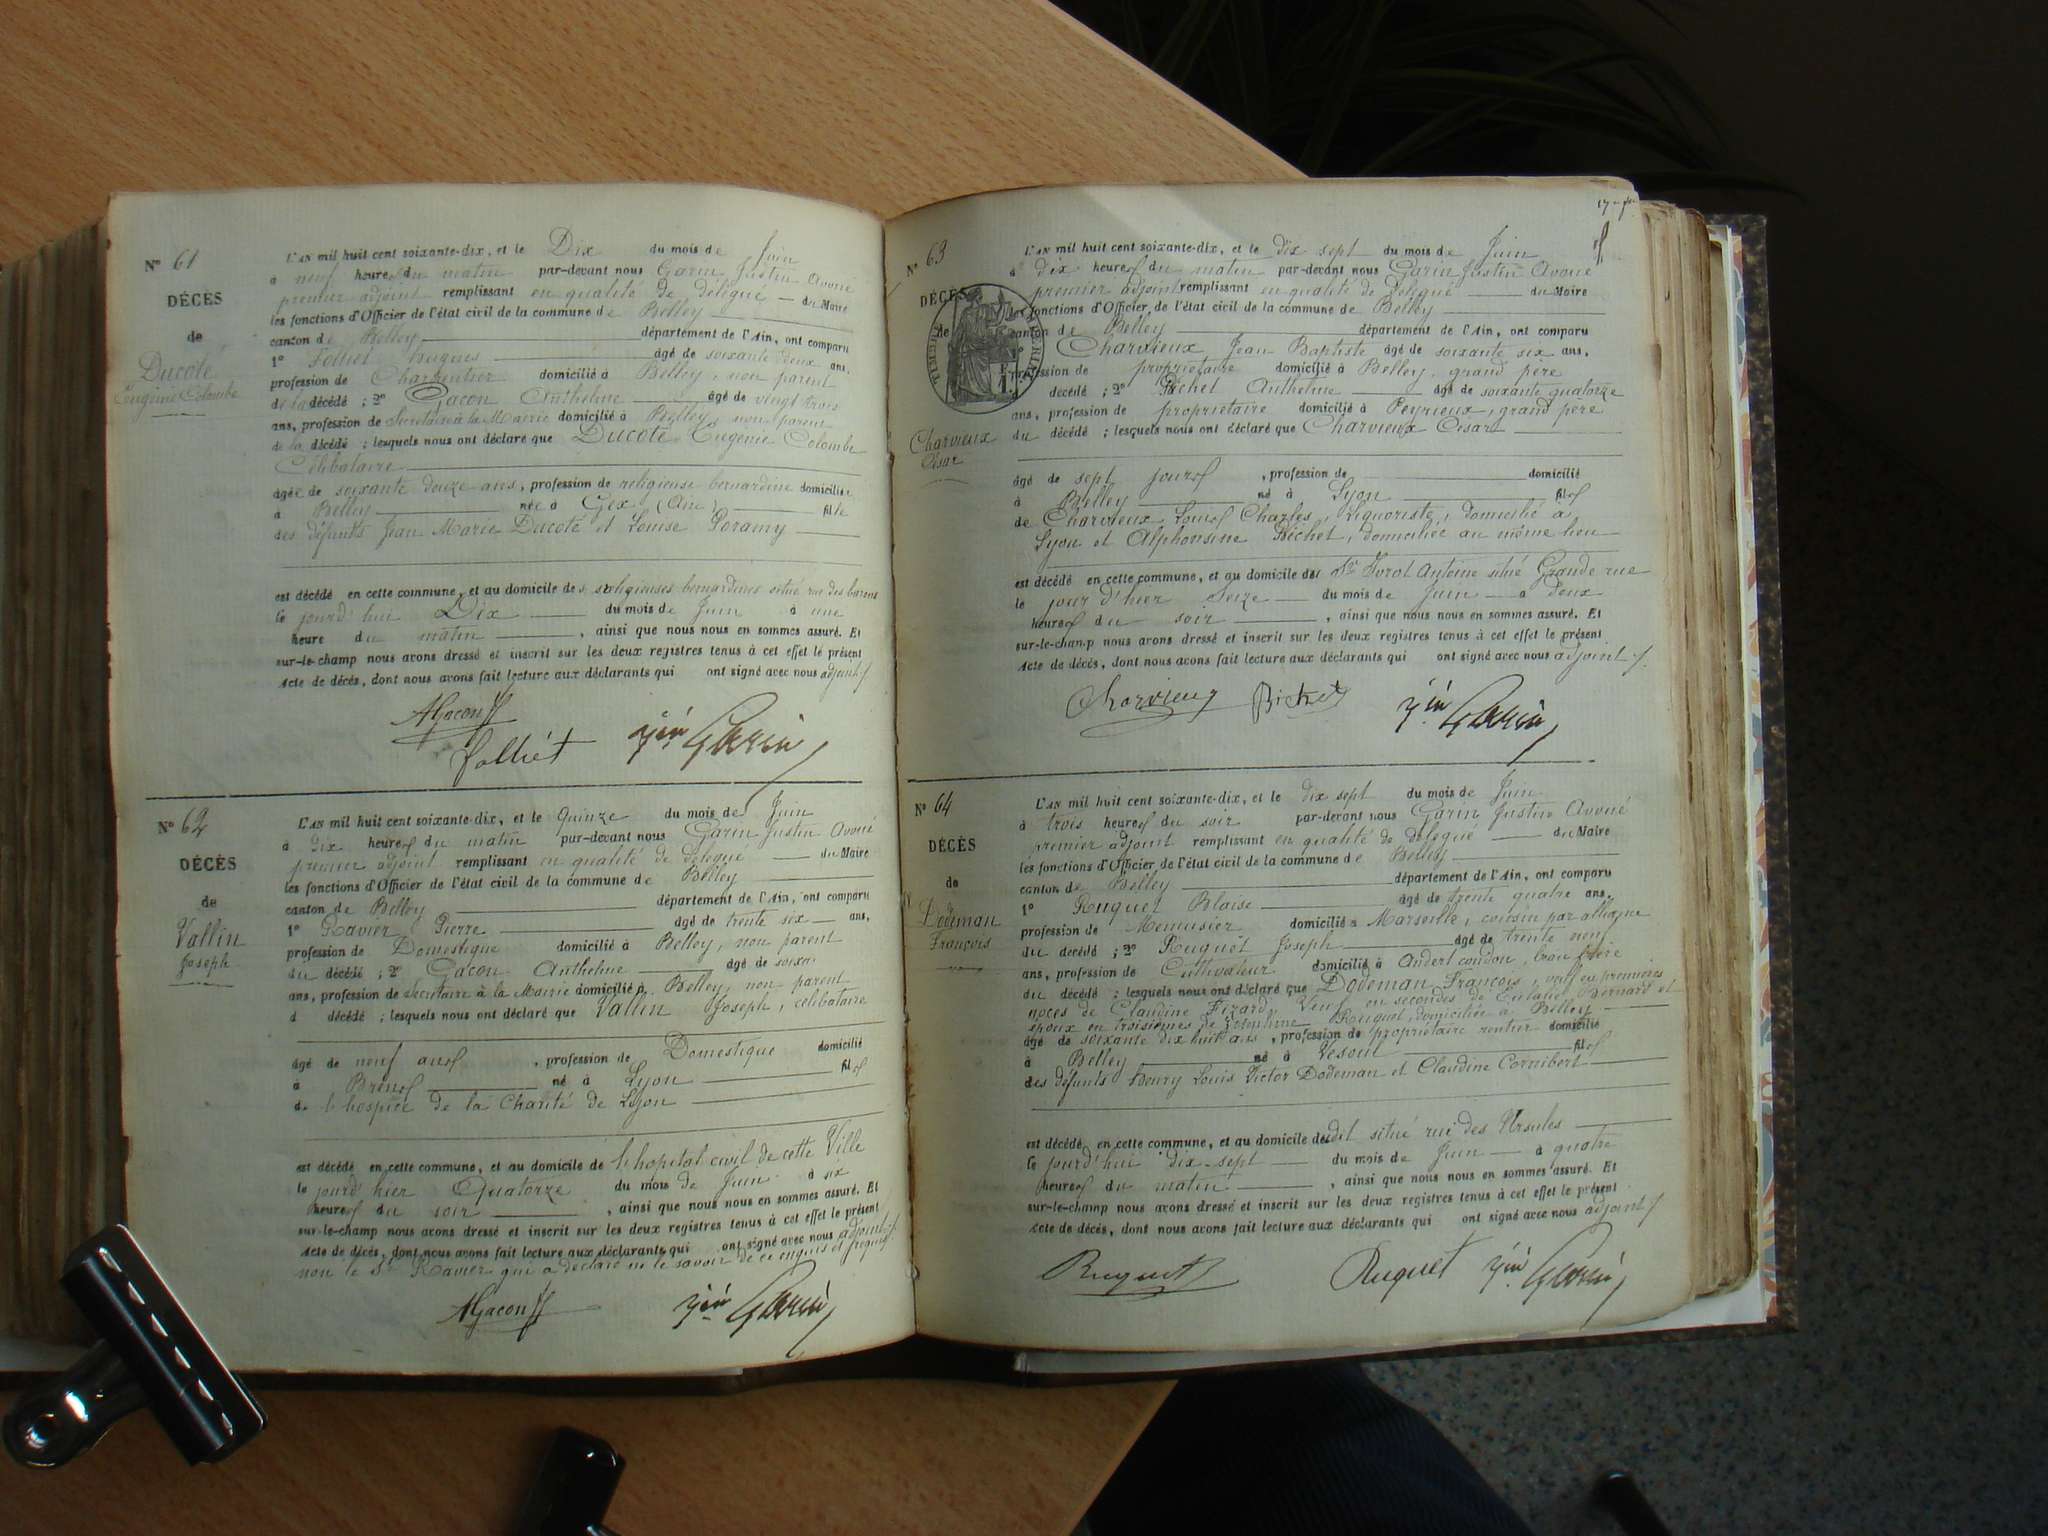 N° 61
DÉCÈS
de
Ducoté
Eugénie Colombe
L'AN mil huit cent soixante-dix, et le Dix du mois de Juin
à neuf heures du matin par-devant nous Garin Justin Avoué
premier adjoint remplissant en qualité de délégué — du Maire
les fonctions d'Officier de l'état civil de la commune de Belley
canton de Belley département de l'Ain, ont comparu
1° Folliet Hugues âgé de soixante deux ans,
profession de Charpentier domicilié à Belley, non parent
de la décédé ; 2° Gacon Anthelme âgé de vingt trois
ans, profession de Secrétaire à la Mairie domicilié à Belley, non parent
de la décédé ; lesquels nous ont déclaré que Ducoté Eugénie Colombe
Célibataire
âgée de soixante douze ans, profession de religieuse bernardine domiciliée
à Belley née à Gex (Ain) fille
des défunts Jean Marie Ducoté et Louise Poramy
est décédé en cette commune, et au domicile des religieuses bernardines situé rue des barons
le jourd'hui Dix du mois de Juin à une
heure du matin , ainsi que nous nous en sommes assuré. Et
sur-le-champ nous avons dressé et inscrit sur les deux registres tenus à cet effet le présent
acte de décès, dont nous avons fait lecture aux déclarants qui ont signé avec nous adjoint
AGacon
Folliet Jin Garin
N° 62
DÉCÈS
de
Vallin
Joseph
L'AN mil huit cent soixante-dix, et le quinze du mois de Juin
à dix heures du matin par-devant nous Garin Justin Avoué
premier adjoint remplissant en qualité de délégué — du Maire
les fonctions d'Officier de l'état civil de la commune de Belley
canton de Belley département de l'Ain, ont comparu
1° Ravier Pierre âgé de trente six ans,
profession de Domestique domicilié à Belley, non parent
du décédé ; 2° Gacon Anthelme âgé de soixan
ans, profession de secrétaire à la Mairie domicilié à Belley, non parent
d décédé ; lesquels nous ont déclaré que Vallin Joseph, célibataire
âgé de neuf ans , profession de Domestique domicilié
à Brens né à Lyon fils
de l'hospice de la Charité de Lyon
est décédé en cette commune, et au domicile de l'hopital civil de cette Ville
le jourd'hier Quatorze du mois de Juin à six
heures du soir , ainsi que nous nous en sommes assuré. Et
sur-le-champ nous avons dressé et inscrit sur les deux registres tenus à cet effet le présent
acte de décès, dont nous avons fait lecture aux déclarants qui ont signé avec nous adjoint
non le Sr Ravier qui a déclaré ne le savoir de ce enquis et requis
AGacon Jin Garin
17
N° 63
DÉCÈS
de
TIMBRE IMPÉRIAL
Charvieux
César
L'AN mil huit cent soixante-dix, et le dix sept du mois de Juin
à dix heures du matin par-devant nous Garin Justin Avoué
premier adjoint remplissant en qualité de délégué du Maire
les fonctions d'Officier de l'état civil de la commune de Belley
canton de Belley département de l'Ain, ont comparu
1° Charvieux Jean Baptiste âgé de soixante six ans,
profession de propriétaire domicilié à Belley, grand père
décédé ; 2° Bichet Anthelme âgé de soixante quatorze
ans, profession de propriétaire domicilié à Peyrieux, grand père
du décédé ; lesquels nous ont déclaré que Charvieux César
âgé de sept jours , profession de domicilié
à Belley né à Lyon fils
de Charvieux Louis Charles, Liquoriste, domicilié à
Lyon et Alphonsine Bichet, domiciliée au même lieu
est décédé en cette commune, et au domicile du Sr Antoine situé Grande rue
le jour d'hier Seize du mois de Juin à deux
heures du soir , ainsi que nous nous en sommes assuré. Et
sur-le-champ nous avons dressé et inscrit sur les deux registres tenus à cet effet le présent
acte de décès, dont nous avons fait lecture aux déclarants qui ont signé avec nous adjoint
Charvieux Bichet Jin Garin
N° 64
DÉCÈS
de
Dodeman
François
L'AN mil huit cent soixante-dix, et le dix sept du mois de Juin
à trois heures du soir par-devant nous Garin Justin Avoué
premier adjoint remplissant en qualité de délégué du Maire
les fonctions d'Officier de l'état civil de la commune de Belley
canton de Belley département de l'Ain, ont comparu
1° Ruguet Blaise âgé de trente quatre ans,
profession de Menuisier domicilié à Marseille, cousin par alliance
du décédé ; 2° Ruguet Joseph âgé de trente neuf
ans, profession de Cultivateur domicilié à Andert condon, beau frère
du décédé ; lesquels nous ont déclaré que Dodeman François, veuf en premières
noces de Claudine Fizard, Veuf en secondes de Eulalie Bernard et
époux en troisièmes de Ruguet, domiciliée à Belley
âgé de soixante dix huit ans , profession de propriétaire rentier domicilié
à Belley né à Vesoul fils
des défunts Henry Louis Victor Dodeman et Claudine Cornibert
est décédé en cette commune, et au domicile dudit situé rue des Ursules
le jourd'hui dix-sept du mois de Juin à quatre
heures du matin , ainsi que nous nous en sommes assuré. Et
sur-le-champ nous avons dressé et inscrit sur les deux registres tenus à cet effet le présent
acte de décès, dont nous avons fait lecture aux déclarants qui ont signé avec nous adjoint
Ruguet Ruguet Jin Garin